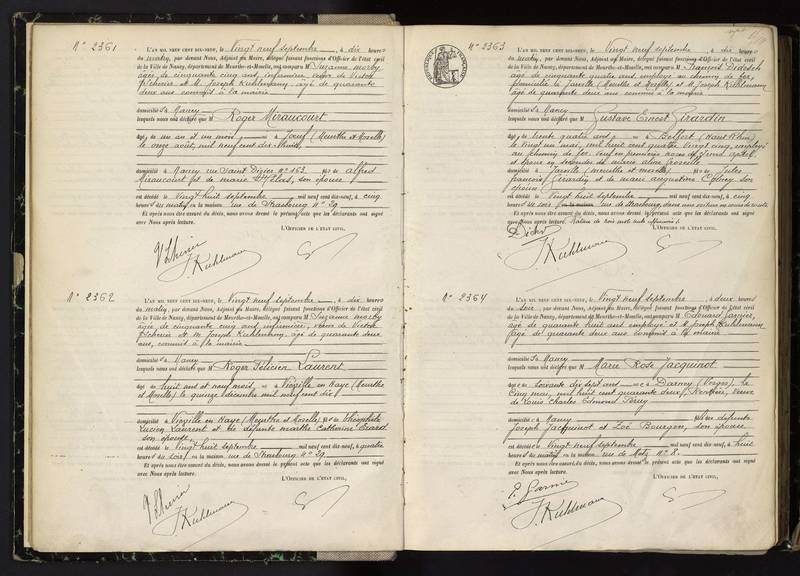 N° 2361
L'AN MIL NEUF CENT DIX-NEUF, le Vingt neuf septembre, à dix heures
du matin, par devant Nous, Adjoint au Maire, délégué faisant fonctions d'Officier de l'état civil
de la Ville de Nancy, département de Meurthe-et-Moselle, ont comparu M Suzanne
âgée de cinquante cinq ans, infirmière, veuve de Victor
et M. Joseph Kuhlmann, âgé de quarante
deux ans commis à la mairie
domiciliés à Nancy
lesquels nous ont déclaré que M Roger Miraucourt
âgé de un an et un mois né à Joeuf (Meurthe et Moselle)
le onze août, mil neuf cent dix-huit
domicilié à Nancy rue Saint Dizier N° 153 fils de Alfred
Miraucourt et de Marie son épouse
est décédé le Vingt huit septembre mil neuf cent dix-neuf, à cinq
heures du matin en la maison rue de Strasbourg N° 29
Et après nous être assuré du décès, nous avons dressé le présent acte que les déclarants ont signé
avec Nous après lecture.
L'OFFICIER DE L'ÉTAT CIVIL,
J. Kuhlmann
N° 2362
L'AN MIL NEUF CENT DIX-NEUF, le Vingt neuf septembre, à dix heures
du matin, par devant Nous, Adjoint au Maire, délégué faisant fonctions d'Officier de l'état civil
de la Ville de Nancy, département de Meurthe-et-Moselle, ont comparu M Suzanne
âgée de cinquante cinq ans, infirmière, veuve de Victor
et M. Joseph Kuhlmann, âgé de quarante deux
ans, commis à la mairie
domiciliés à Nancy
lesquels nous ont déclaré que M Roger Félicien Laurent
âgé de huit ans et neuf mois, né à Viéville en Haye (Meurthe
et Moselle) le quinze décembre mil neuf cent dix
domicilié à Viéville en Haye (Meurthe et Moselle) fils de
Lucien Laurent et de défunte Marthe Catherine
son épouse
est décédé le Vingt huit septembre mil neuf cent dix-neuf, à quatre
heures du soir en la maison rue de Strasbourg N° 29
Et après nous être assuré du décès, nous avons dressé le présent acte que les déclarants ont signé
avec Nous après lecture.
L'OFFICIER DE L'ÉTAT CIVIL,
J. Kuhlmann
N° 2363
L'AN MIL NEUF CENT DIX-NEUF, le Vingt neuf septembre, à dix heures
du matin, par devant Nous, Adjoint au Maire, délégué faisant fonctions d'Officier de l'état civil
de la Ville de Nancy, département de Meurthe-et-Moselle, ont comparu M François
âgé de cinquante quatre ans employé au chemin de fer,
domicilié à Jarville (Meurthe et Moselle) et M. Joseph Kuhlmann
âgé de quarante deux ans commis à la mairie
domiciliés à Nancy
lesquels nous ont déclaré que M Gustave Ernest Girardin
âgé de trente quatre ans, né à Belfort (Haut Rhin)
le vingt un mai, mil huit cent quatre vingt cinq, employé
au chemin de fer, veuf en premières noces de
et époux en secondes de
domicilié à Jarville (Meurthe et Moselle) fils de Jules
François Girardin et de Marie Augustine son
épouse
est décédé le Vingt huit septembre mil neuf cent dix-neuf, à cinq
heures du soir rue de Strasbourg, dans une voiture au cours de route
Et après nous être assuré du décès, nous avons dressé le présent acte que les déclarants ont signé
avec Nous après lecture.
L'OFFICIER DE L'ÉTAT CIVIL,
J. Kuhlmann
N° 2364
L'AN MIL NEUF CENT DIX-NEUF, le Vingt neuf septembre, à deux heures
du soir, par devant Nous, Adjoint au Maire, délégué faisant fonctions d'Officier de l'état civil
de la Ville de Nancy, département de Meurthe-et-Moselle, ont comparu M Edouard Garnier,
âgé de quarante huit ans employé et M. Joseph Kuhlmann
âgé de quarante deux ans commis à la mairie
domiciliés à Nancy
lesquels nous ont déclaré que M Marie Rose Jacquinot
âgée de soixante dix sept ans née à Darney (Vosges), le
cinq mai, mil huit cent quarante deux, veuve
de Louis Charles Edmond
domiciliée à Nancy fille des défunts
Joseph Jacquinot et Zoé Bourgon, son épouse
est décédée le Vingt neuf septembre mil neuf cent dix-neuf, à huit
heures du matin en la maison rue de Metz N° 8.
Et après nous être assuré du décès, nous avons dressé le présent acte que les déclarants ont signé
avec Nous après lecture.
L'OFFICIER DE L'ÉTAT CIVIL,
E. Garnier
J. Kuhlmann